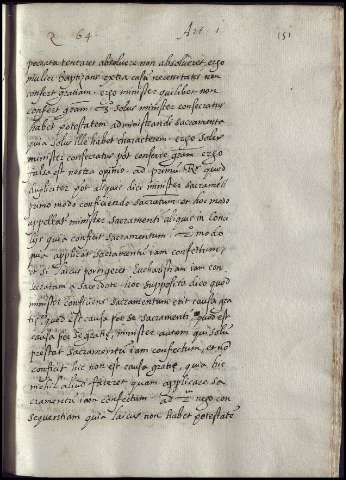 Q. 64. Art. i 151
peccata teneret absolvere non absolveret, ergo
mulier baptizans extra casũ necessitatis non
confert gratiam. ergo minister quilibet non
confert gram. solus minister consecratus
habet potestatem administrandi sacramenta
quia solus ille habet characterem. ergo solus
minister consecratus pot conferre gram. ergo
falsa est nostra opinio. ad primũ Rr quod
dupliciter pot aliquis dici minister sacramẽti
primo modo conficiendo sacramtum et hoc modo
appellat minister sacramenti aliquis in
quia conficit sacramentum. 2º modo
quia applicat sacramẽtũ iam confectum,
et si laicus porrigeret Eucharistiam iam con
secratam a sacerdote. hoc supposito dico quod
minister conficiens sacramentum erit causa gra
tie, quod est causa per se sacramenti quod est
causa per se gratie, minister autem qui solũ
prestat sacramẽtũ iam confectum, et nõ
conficit hic non est causa gratie, quia hic
nichil aliud faceret quam applicare sa
cramentũ iam confectum. ad 2m nego con
sequentiam quia laicus non habet potestatẽ